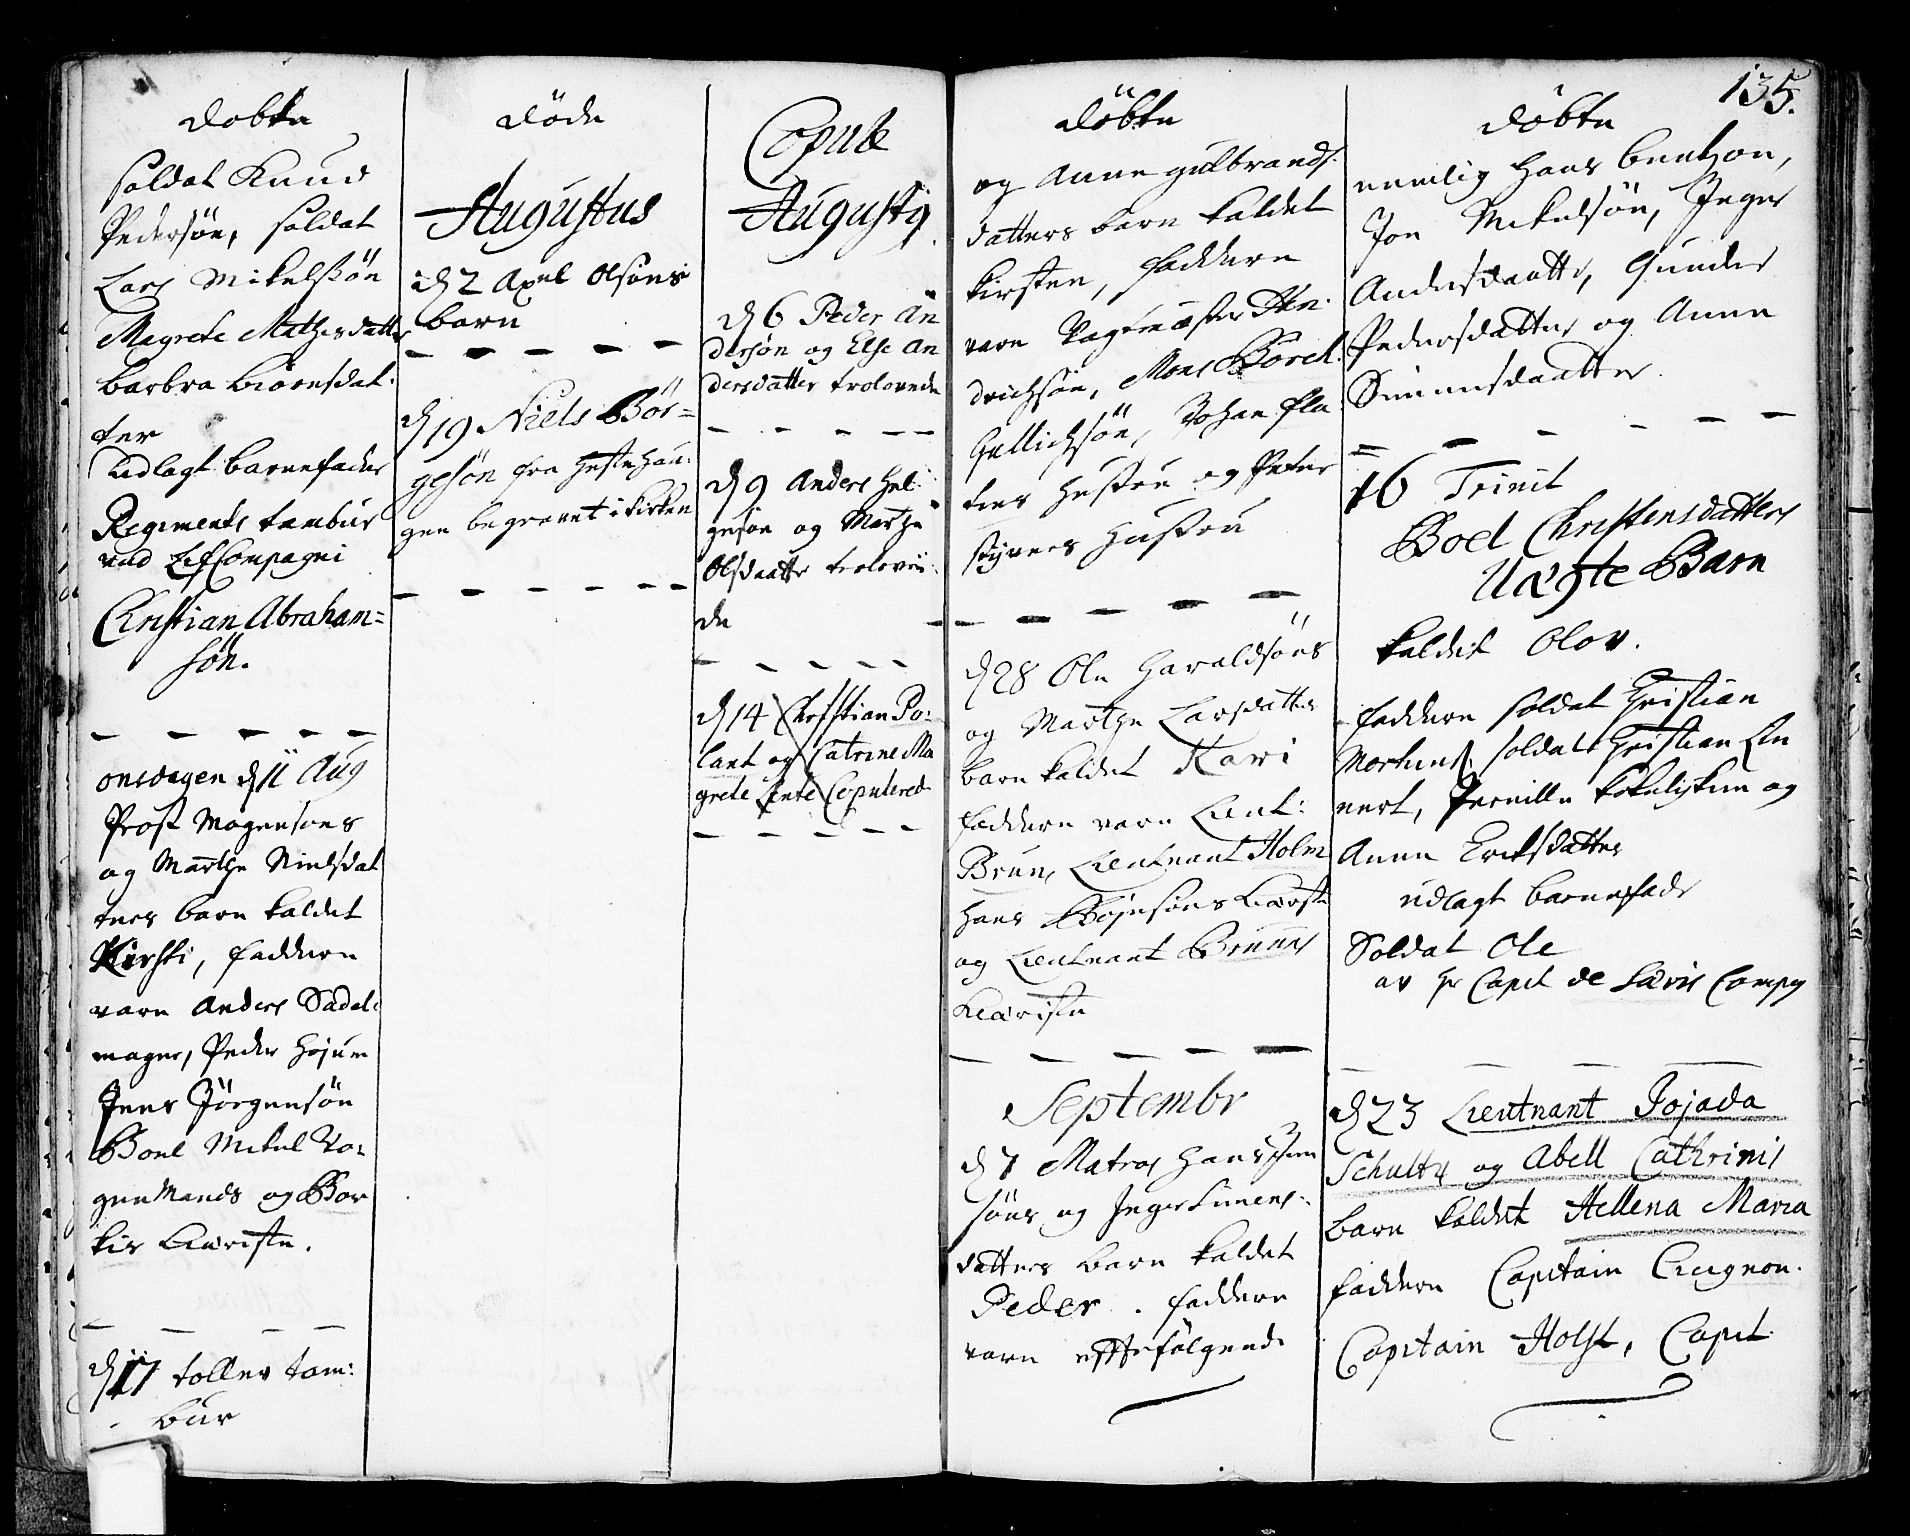 Dobte
Soldat Knud
Pedersøn, soldat
Lars Mikelssøn
Magrete Mathisdatter
barbra biørnsdat-
ter
Udlagt barnefader
Regiments tambur
ved LifCompagni
Christian Abraham=
søn.
onsdagen d 11 Aug
Prost Mogensøns
og Marthe Nielsdat
ters barn kaldet
Kirsti, faddere
vare Anders Sadel-
mager, Peder Højum
Jens Jørgensøn
Boel Mikel Vo-
genmands og Bor
kis Kieriste.
d 17 tollev tam:
bur
Døde
Augustus
d 2 Axel Olsøns
barn
d 19 Niels Bør=
gesøn fra Hestehau:
gen begravet i kirken
Copule
Augusty
d 6 Peder An
dersøn og Else An
dersdatter trolovede
d 9 Anders Hel-
gesøn og Marthe
Olsdaatter trolovi-
de
d 14 Christian Po-
lant og Catrine Ma
grete Lente Copulered
Døbte
og Anne gulbrands-
datters barn kaldet
kirsten, faddere
vare Vagtmæster Hen-
drichsøn, Mons Borel
Gullichsøn, Johan fla
ters Hustru og Peter
styvers Hustru
d 28 Ole Haraldsøns
og Marthe Larsdatter
barn kaldet Kari
faddere vare Lieut:
Brun, Lieutnant Holm
Hans Bojesøns Kierste
og Lieutnant Bruns
Kieriste
Septembr
d 7 Matros Hans Jen
søns og Inger Simens-
datters barn kaldet
Peder. faddere
vare efterfølgende
135.
Døbte
nemlig Hans bentzon,
Jon Mikelsøn, Inger
Andersdaatter, Gunder
Pedersdatter og Anne
Simensdaatter.
16 Trinit
Boel Christensdatters
Uægte Barn
kaldet Olov.
faddere Soldat Christian
Mortens, soldat Christian Lin
nert, Pernille og
Anne Eriksdatter
udlagt barnefader
Soldat Ole
av Hr Capit de Særis Compg
d 23 Lieutnant Jojada
Schultz og Abell Cathrinis
barn kaldet Hellena Maria
faddere Capitain Cragnon.
Capitain Holst, Capit